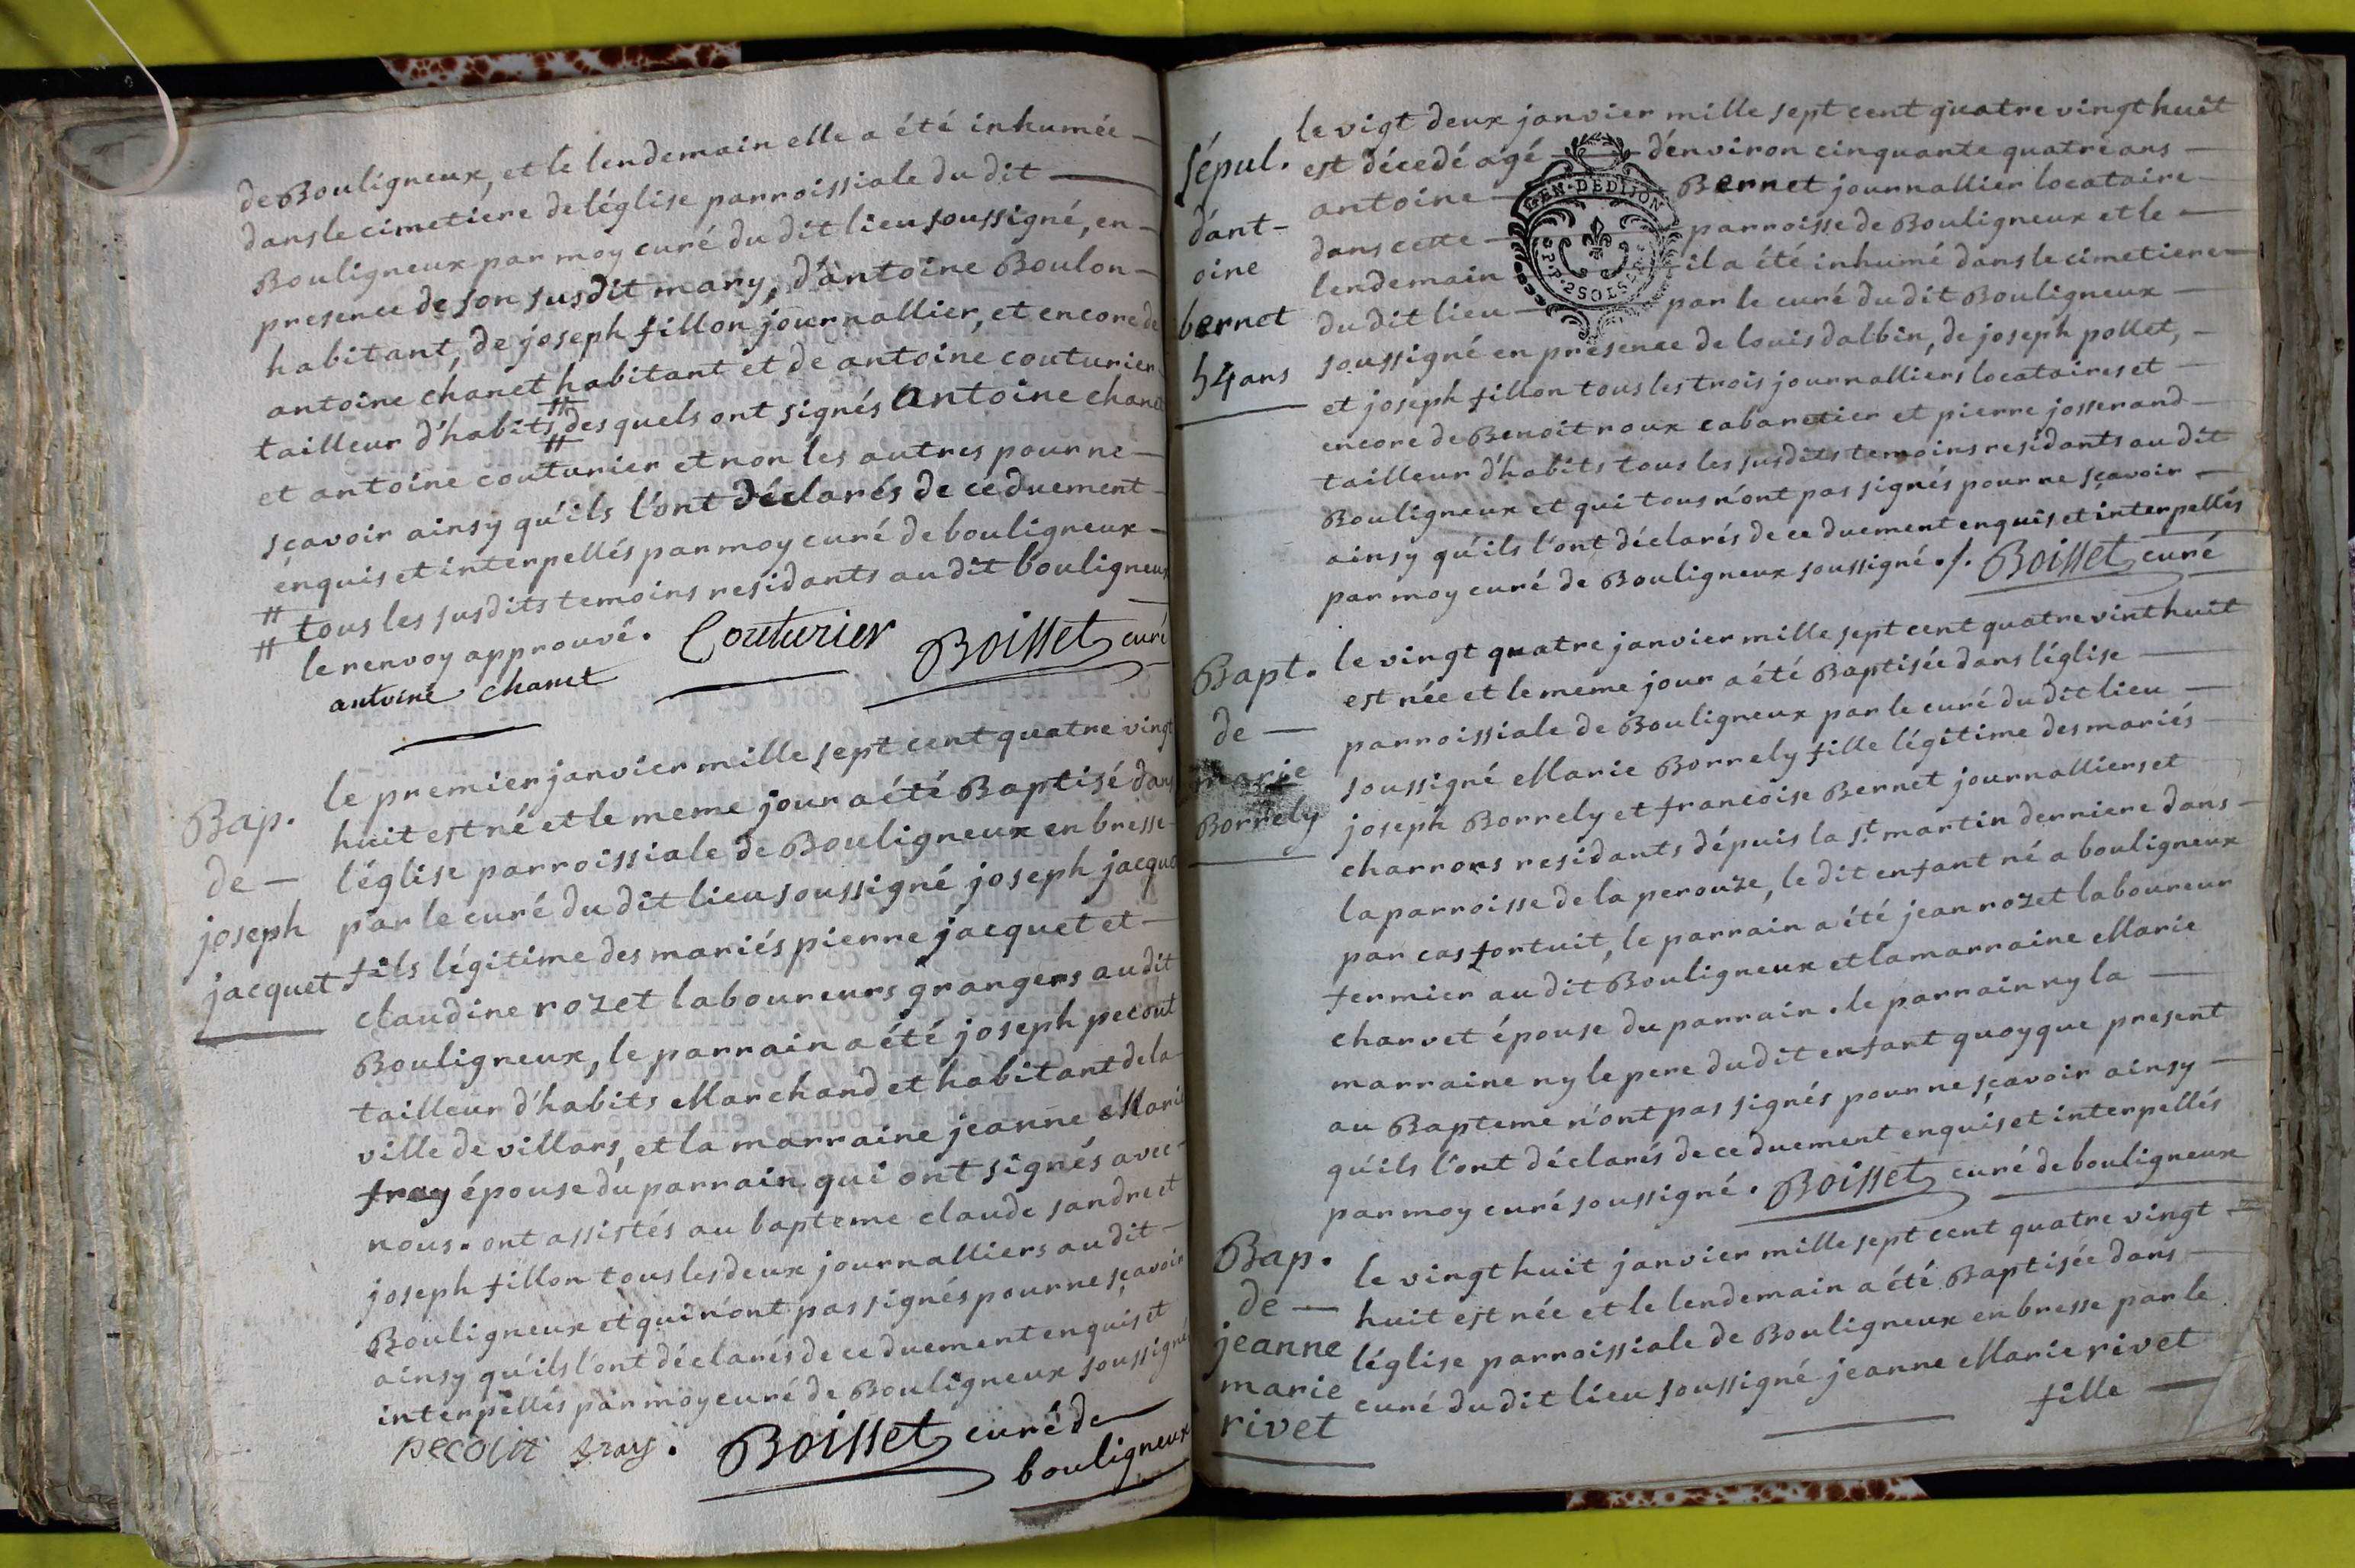 de Bouligneux, et le lendemain elle a été inhumée
dans le cimetiere de l'église parroissiale du dit
Bouligneux par moy curé du dit lieu soussigné, en
presence de son susdit mary, d'antoine Boulon
habitant, de joseph fillon journallier, et encore de
antoine chanet habitant et de antoine couturier
tailleur d'habits, # desquels ont signés antoine chanet
et antoine couturier et non les autres pour ne
sçavoir ainsy qu'ils l'ont déclarés de ce duement
enquis et interpellés par moy curé de bouligneux
# tous les susdits temoins residants au dit bouligneux
# le renvoy approuvé. Couturier Boisset curé
antoine chanet
Bap.
de
joseph
jacquet
le premier janvier mille sept cent quatre vingt
huit est né et le meme jour a été Baptisé dans
l'église parroissiale de Bouligneux en bresse
par le curé du dit lieu soussigné joseph jacquet
fils légitime des mariés pierre jacquet et
claudine rozet laboureurs grangers au dit
Bouligneux, le parrain a été joseph pecout
tailleur d'habits Marchand et habitant de la
ville de villars, et la marraine jeanne Marie
fray épouse du parrain qui ont signés avec
nous. ont assistés au bapteme claude sandre et
joseph fillon tous les deux journalliers au dit
Bouligneux et qui n'ont pas signés pour ne sçavoir
ainsy qu'ils l'ont déclarés de ce duement enquis et
interpellés par moy curé de Bouligneux soussigné
pecout fray. Boisset curé de
bouligneux
sépul.
d'ant-
oine
bernet
54 ans
le vigt deux janvier mille sept cent quatre vingt huit
est décedé agé d'environ cinquante quatre ans
antoine Bernet journallier locataire
dans cette parroisse de Bouligneux et le
lendemain il a été inhumé dans le cimetiere
du dit lieu par le curé du dit Bouligneux
GEN. DE DIJON
soussigné en presence de louis dalbin, de joseph pollet,
et joseph fillon tous les trois journalliers locataires et
encore de Benoit roux cabaretier et pierre josserand
tailleur d'habits tous les susdits temoins residants au dit
Bouligneux et qui tous n'ont pas signés pour ne sçavoir
ainsy qu'ils l'ont déclarés de ce duement enquis et interpellés
par moy curé de Bouligneux soussigné ./. Boisset curé
Bapt.
de
marie
Borrely
le vingt quatre janvier mille sept cent quatre vint huit
est née et le meme jour a été Baptisée dans l'église
parroissiale de Bouligneux par le curé du dit lieu
soussigné Marie Borrely fille légitime des mariés
joseph Borrely et francoise Bernet journalliers et
charrons residants dépuis la st martin derniere dans
la parroisse de la perouze, le dit enfant né a bouligneux
par cas fortuit, le parrain a été jean rozet laboureur
fermier au dit Bouligneux et la marraine Marie
charvet épouse du parrain. le parrain ny la
marraine ny le pere du dit enfant quoyque present
au Bapteme n'ont pas signés pour ne sçavoir ainsy
qu'ils l'ont déclarés de ce duement enquis et interpellés
par moy curé soussigné. Boisset curé de bouligneux
Bap.
de
jeanne
marie
rivet
le vingt huit janvier mille sept cent quatre vingt
huit est née et le lendemain a été Baptisée dans
l'église parroissiale de Bouligneux en bresse par le
curé du dit lieu soussigné jeanne Marie rivet
fille